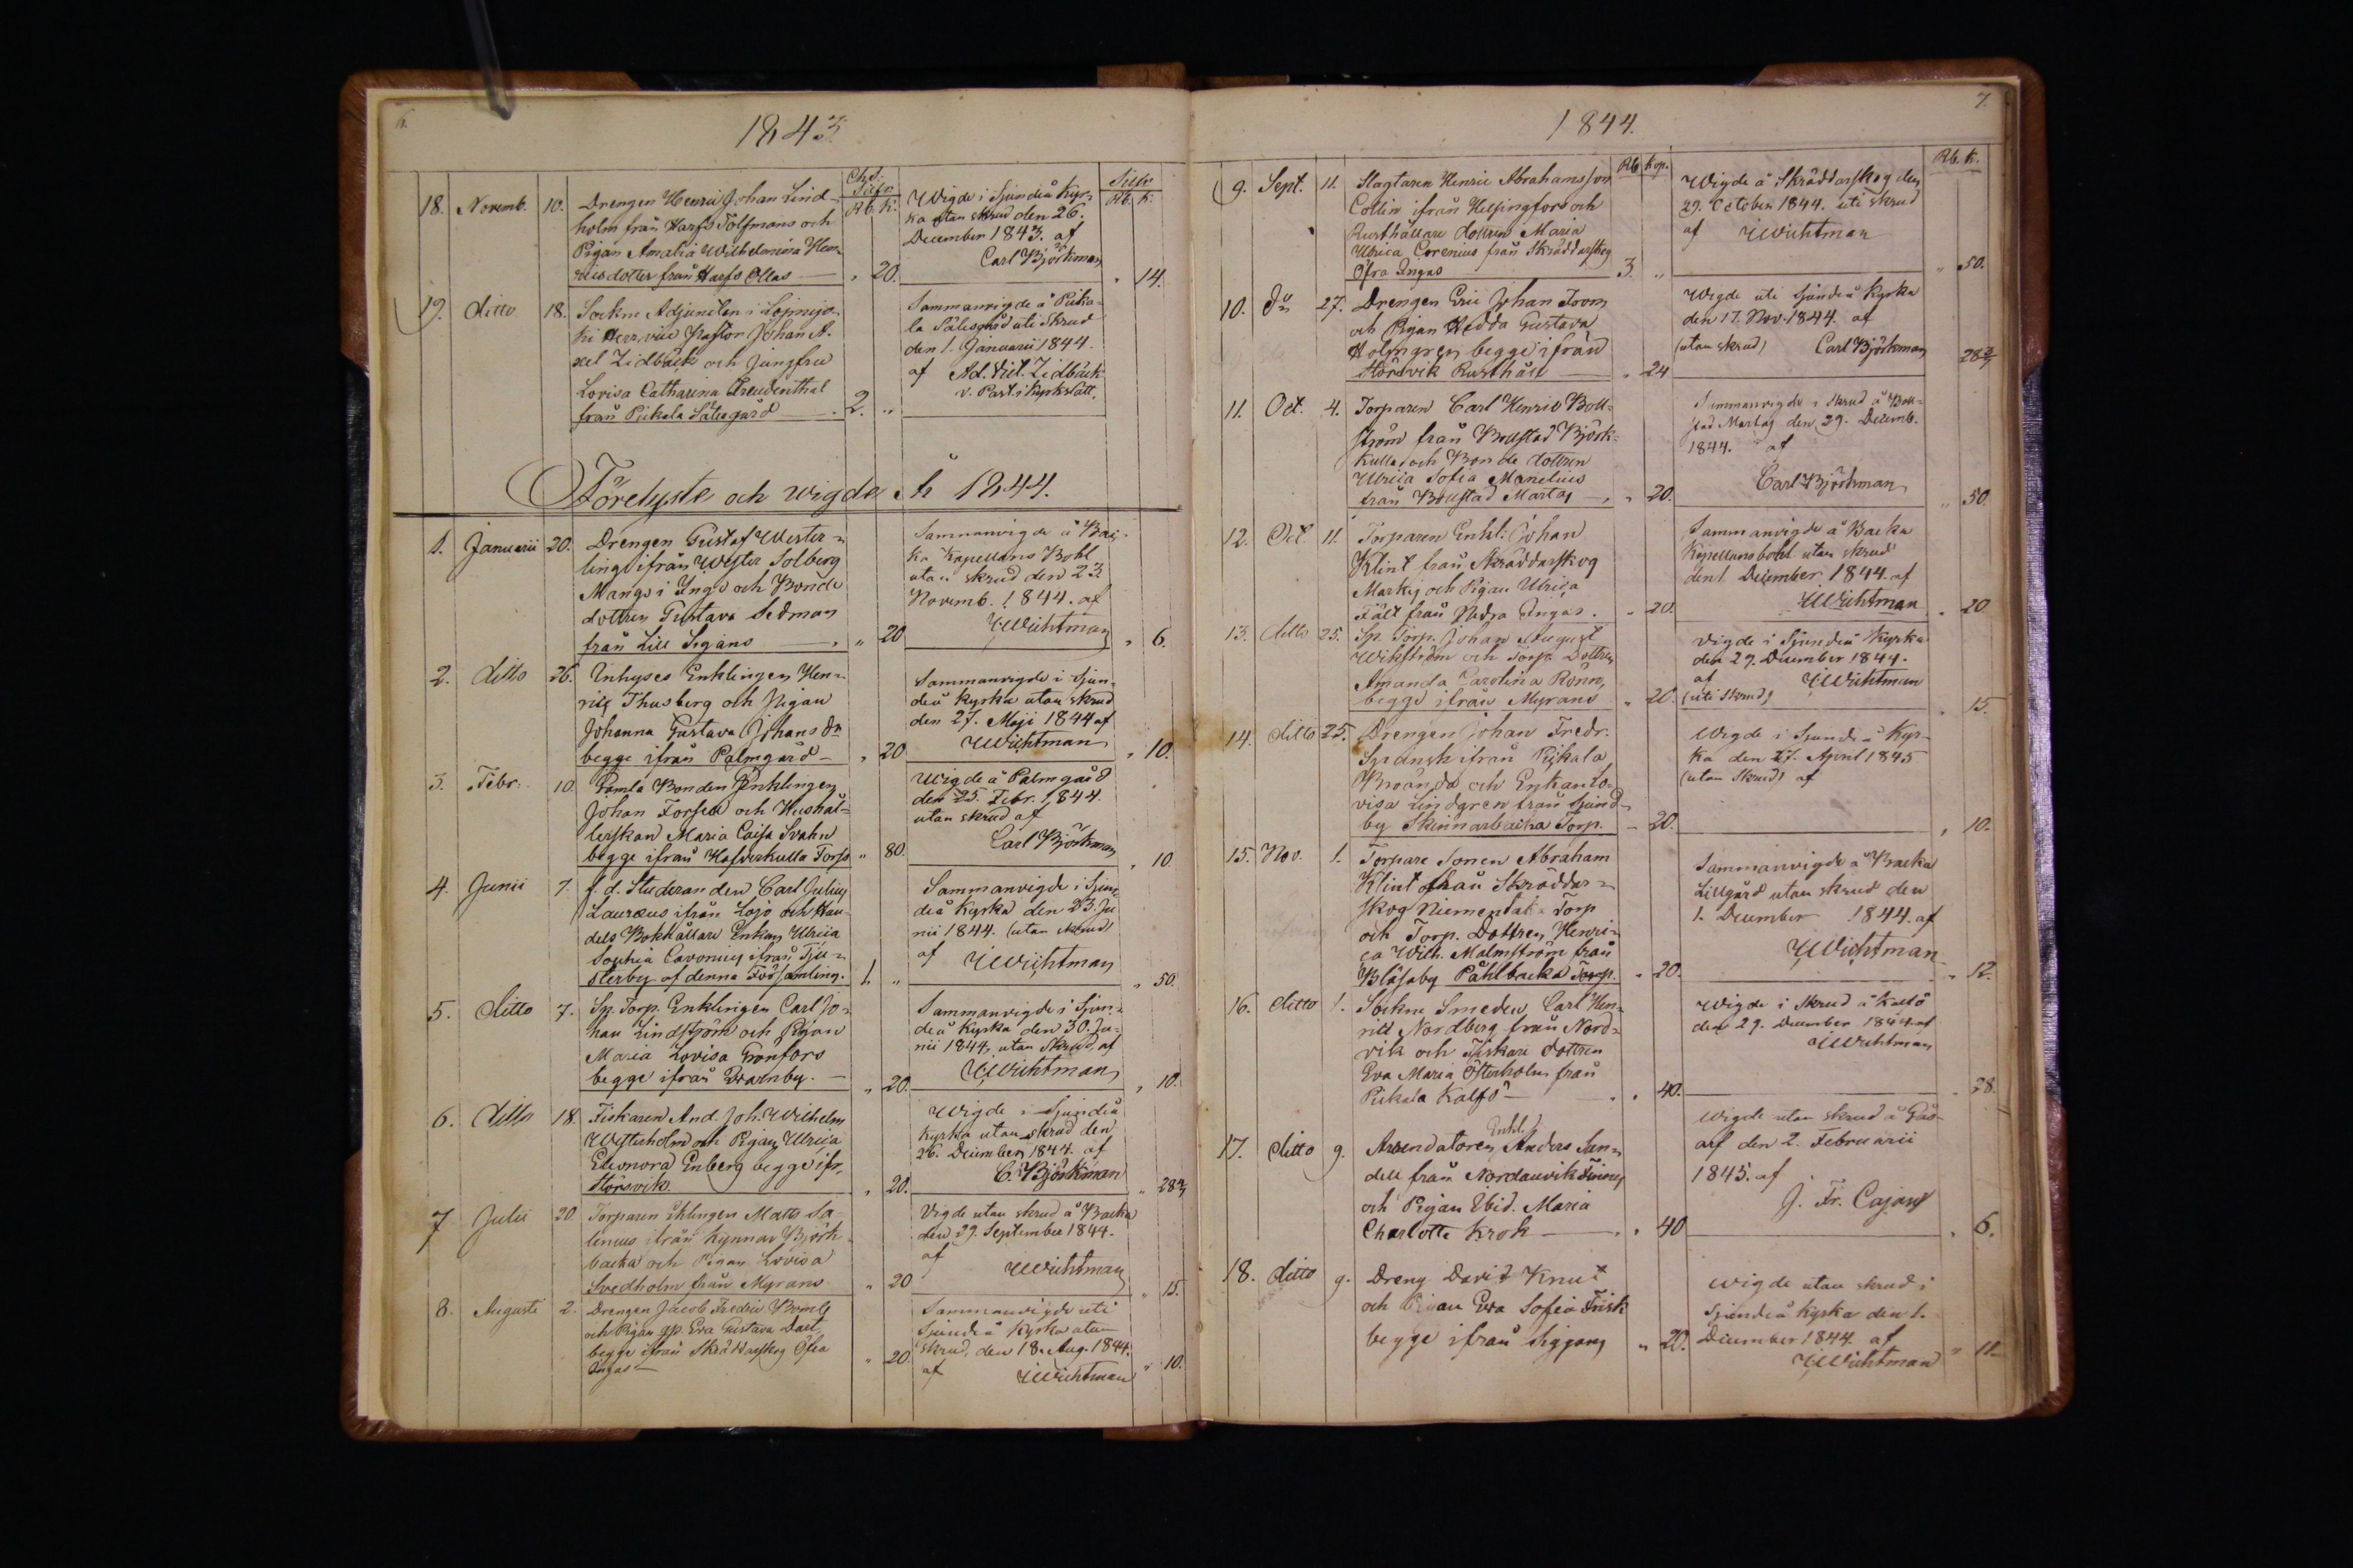 6.
1843.
18. Novemb. 10. Drengen Henric Johan Lind-
holm från Harfs Tolfmans och
Pigan Amalia Wilhelmina Hen-
ricsdotter från Harfs Ollas — " 20.
Silfr
Rb. K.
Wigde i Sjundeå Kyr-
ka utan skrud den 26.
December 1843. af
Carl Björkman
Silfr
Rb. K.
" 14.
19. ditto 18. Sockne Adjuncten i
Herr vice Pastor Johan A-
xel Zidbäck och Jungfru
Lovisa Catharina Freudenthal
från Pickala Sätesgård — 2. "
Sammanvigde å Picka-
la Sätesgård uti Skrud
den 1. Januarii 1844.
af Ad. Vict. Zidbäck
v. Past. i Kyrkslätt.
Förelyste och wigde År 1844.
1. Januarii 20. Drengen Gustaf Wester-
ling ifrån Wester Solberg
Mangs i Ingå och Bonde
dottren Gustava Sedman
från Lill Sigans — " 20
Sammanvigde å Bac-
ka Kapellans Bohl
utan skrud den 23
Novemb. 1844. af
Wichtman " 6.
2. ditto 26. Inhyses Enklingen Hen-
ric Thusberg och Pigan
Johanna Gustava Johans dr
begge ifrån Palmgård — " 20
Sammanvigde i Sjun-
deå kyrka utan skrud
den 27. Maji 1844 af
Wichtman " 10.
3. Febr. 10. Gamla Bonden Enklingen
Johan Forsell och Hushål-
lerskan Maria Caisa Svahn
begge ifrån Hafverkulla Torp " 80.
Wigde å Palmgård
den 25. Febr. 1844.
utan skrud af
Carl Björkman " 10.
4. Junii 7. f. d. Studeranden Carl Julius
Lauræus ifrån Lojo och Han-
dels Bokhållare Enkan Ulrica
Sophia Cavonius ifrån Tju-
sterby af denna Församling. 1. "
Sammanvigde i Sjun-
deå Kyrka den 23. Ju
nii 1844. (utan skrud)
af Wichtman " 50.
5. ditto 7. Sp. Torp. Enklingen Carl Jo-
han Lindström och Pigan
Maria Lovisa Grönfors
begge ifrån Qvarnby. — " 20.
Sammanvigde i Sjun-
deå Kyrka den 30. Ju-
nii 1844. utan Skrud, af
Wichtman " 10.
6. ditto 18. Fiskaren And. Joh. Wilhelm
Westerholm och Pigan Ulrica
Eleonora Enberg begge ifr.
Störsvik. " 20.
Wigde i Sjundeå
kyrka utan skrud den
26. December 1844. af
C. Björkman " 28 4/7
7. Julii 20. Torparen Eklingen Matts Sa-
lenius ifrån Kynnar Björk-
backa och Pigan Lovisa
Svedholm från Myrans " 20
Vigde utan skrud å Backa
den 29. September 1844.
af Wichtman " 15.
8. Augusti 2. Drengen Jacob Fredric
och Pigan gp. Eva Gustava
begge ifrån Skräddarskog Öfra
Ingas — " 20.
Sammanvigde uti
Sjundeå Kyrka utan
skrud, den 18. Aug. 1844.
af Wichtman " 10.
7.
1844.
Rb. Kop.
Rb. K.
9. Sept. 11. Slagtaren Henric Abrahamsson
Collin ifrån Helsingfors och
Rusthållare dottren Maria
Ulrica Corenius från Skräddarskog
Öfra Ingas 3. "
Wigde å Skräddarskog den
29. October 1844. uti skrud
af Wichtman
" 50.
10. do 27. Drengen Eric Johan
och Pigan Hedda Gustava
Holmgren begge ifrån
Störsvik Rusthåll — " 24
Wigde uti Sjundeå Kyrka
den 17. Nov. 1844. af
(utan skrud) Carl Björkman 28 4/7
11. Oct. 4. Torparen Carl Henric Boll-
ström från Bollstad Björk-
kulla och Bonde dottren
Ulrica Sofia Manelius
från Bollstad Martas — " 20.
Sammanvigde i skrud å Boll-
stad Martas den 29. Decemb.
1844. af
Carl Björkman
" 50.
12. Oct. 11. Torparen Enkl: Johan
Klint från Skräddarskog
Markis och Pigan Ulrica
Fält från Nedra Ingas. " 20.
Sammanvigde å Backa
Kapellansbohl utan skrud
den 1. December 1844. af
Wichtman " 20
13. ditto 25. Sp. Torp. Johan August
Wikström och Torp. Dottren
Amanda Carolina Rönn,
begge ifrån Myrans " 20.
Vigde i Sjundeå Kyrka
den 29. December 1844.
af Wichtman
(uti Skrud) " 15.
14. ditto 25. Drengen Johan Fredr.
Spansk ifrån Pickala
Broända och Enkan Lo-
visa Lindgren från Sjund-
by Skinnarbacka Torp. — 20.
Wigde i Sjundeå Kyr-
ka den 27. April 1845
(utan Skrud) af
" 10.
15. Nov. 1. Torpare Sonen Abraham
Klint från Skräddar-
skog Niementaka Torp
och Torp. Dottren Henri-
ca Wilh. Malmström från
Blåsaby Påhlbacka Torp. " 20.
Sammanvigde å Backa
Lillgård utan skrud den
1. December 1844. af
Wichtman
" 12.
16. ditto 1. Sockne Smeden Carl Hen-
rik Nordberg från Nord-
vik och Fiskare dottren
Eva Maria Österholm från
Pickala Kalfö — " 40.
Wigde i Skrud å Kalfö
den 29. December 1844 af
Wichtman
28.
17. ditto 9. Arrendatoren Enkl. Anders San-
dell från Nordanvik Finns
och Pigan Ibid. Maria
Charlotta Krok — " 40
Wigde utan skrud å Gås-
arf den 2. Februarii
1845. af
J. Fr. Cajan
" 6.
18. ditto 9. Dreng David Knut
och Pigan Eva Sofia Frisk
begge ifrån Siggans " 20.
Wigde utan skrud i
Sjundeå Kyrka den 1.
December 1844. af
Wichtman " 11.